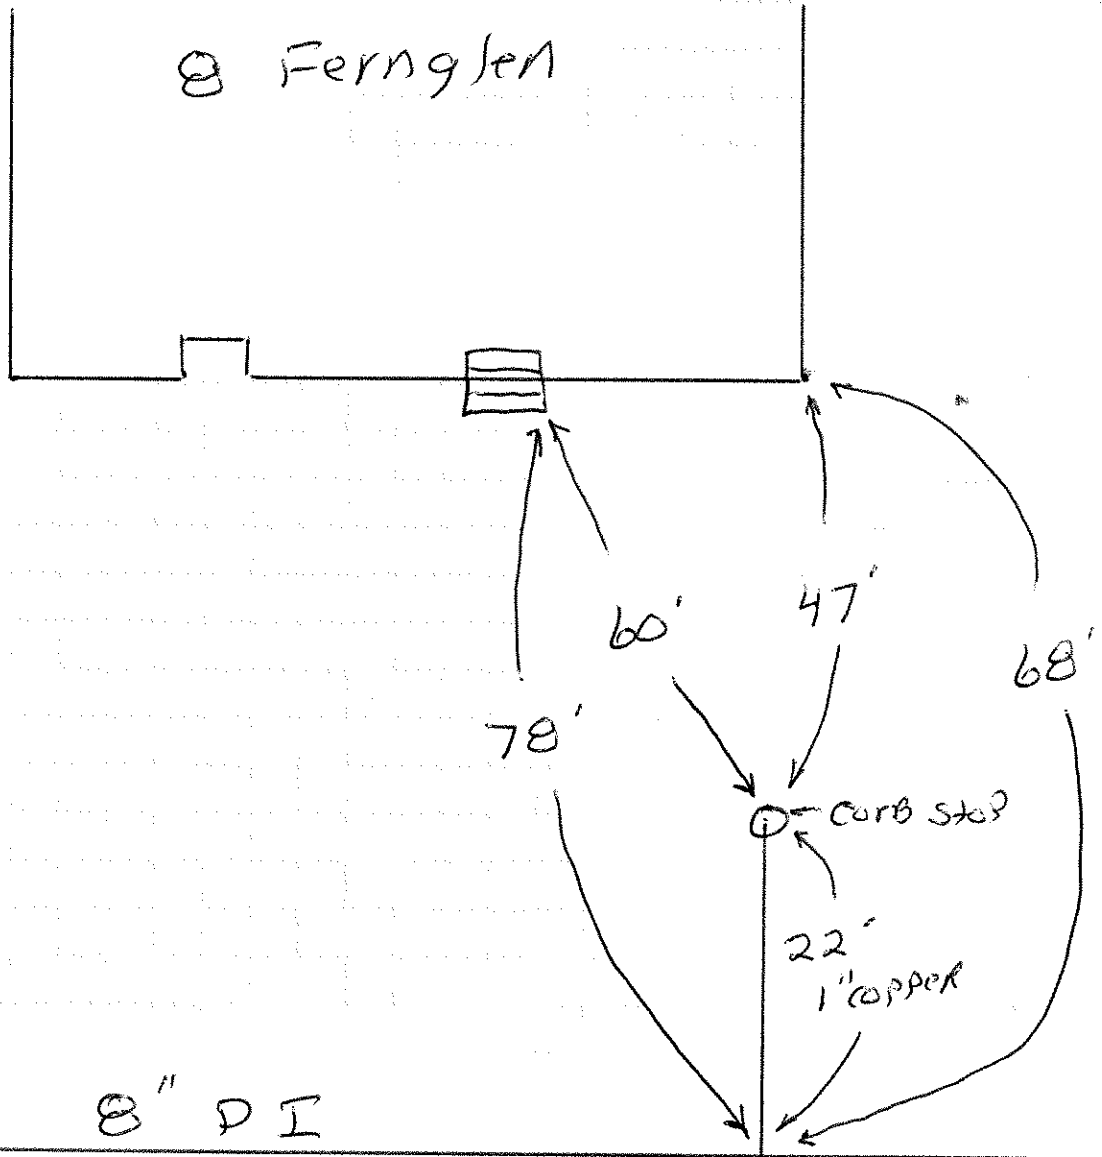 8 Fernglen
60'
47'
68'
78'
CURB STOP
22'
1" COPPER
8" DI